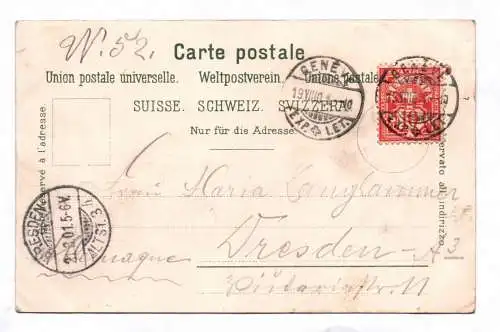 W. 52.
Carte postale
Union postale universelle. Weltpostverein. Unione postale
SUISSE. SCHWEIZ. SVIZZERA
Nur für die Adresse.
réservé à l'adresse.
servato al indirizzo
GENÈ
19 VIII 01
EXP. LET.
EXP. LET.
DRESDEN
ALTST.
01.5-6V.
Frau Maria Langhammer
Dresden-A 3